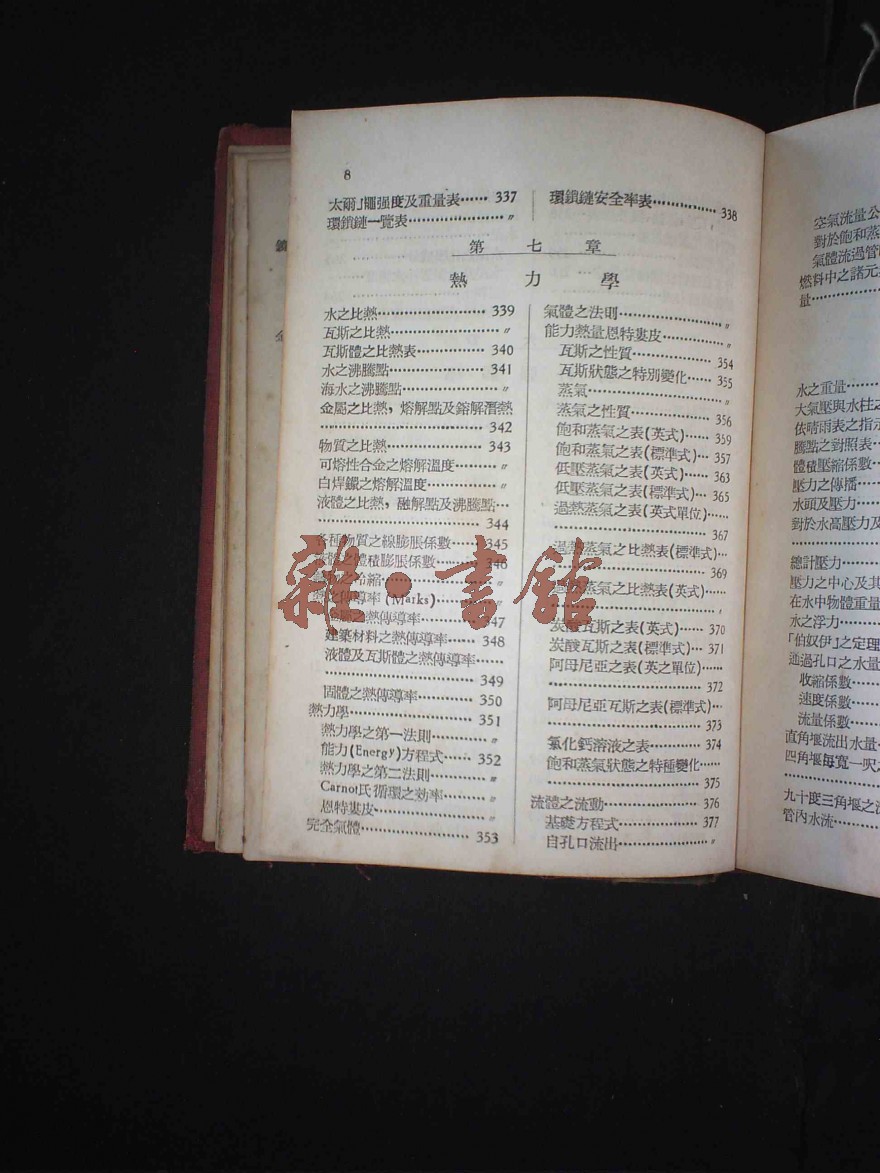 8
環鎖鏈一覽表……………〃
環鎖鏈安全率表……………338
第七章
熱力學
水之比熱……………339
瓦斯之比熱……………〃
瓦斯體之比熱表……………340
水之沸騰點……………341
海水之沸騰點……………〃
金屬之比熱，熔解點及鎔解潛熱
……………342
物質之比熱……………343
可熔性合金之熔解溫度………〃
白焊鑞之熔解溫度…………〃
液體之比熱，融解點及沸騰點…
……………344
各種物質之線膨脹係數……345
體積膨脹係數……346
冷縮……………〃
傳導率(Marks)……〃
之熱傳導率……347
建築材料之熱傳導率……348
液體及瓦斯體之熱傳導率……
……………349
固體之熱傳導率………350
熱力學……………351
熱力學之第一法則………〃
能力(Energy)方程式……352
熱力學之第二法則………〃
Carnot氏循環之効率………〃
恩特婁皮……………〃
完全氣體……………353
氣體之法則……………〃
能力熱量恩特婁皮…………〃
瓦斯之性質……………354
瓦斯狀態之特別變化……355
蒸氣……………〃
蒸氣之性質……………356
飽和蒸氣之表(英式)……359
飽和蒸氣之表(標準式)…357
低壓蒸氣之表(英式)……363
低壓蒸氣之表(標準式)…365
過熱蒸氣之表(英式單位)……
……………367
過熱蒸氣之比熱表(標準式)…
……………369
蒸氣之比熱表(英式)……
炭酸瓦斯之表(英式)……370
炭酸瓦斯之表(標準式)…371
阿母尼亞之表(英之單位)……
……………372
阿母尼亞瓦斯之表(標準式)…
……………373
氯化鈣溶液之表…………374
飽和蒸氣狀態之特種變化……
……………375
流體之流動……………376
基礎方程式……………377
自孔口流出……………〃
空氣流量公
對於飽和蒸
氣體流過管
燃料中之諸元
量……………
水之重量……
大氣壓與水柱之
依晴雨表之指示
騰點之對照表…
體積壓縮係數…
壓力之傳播……
水頭及壓力……
對於水高壓力及
總計壓力………
壓力之中心及其
在水中物體重量
水之浮力………
「伯奴伊」之定理
通過孔口之水量
收縮係數……
速度係數……
流量係數……
直角堰流出水量…
四角堰每寬一呎之
……………
九十度三角堰之
管內水流………
雜·書館